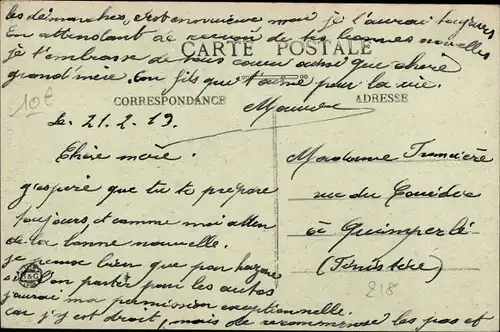 les démarches, c'est ennuyeux mais je l'aurai toujours
En attendant de recevoir de tes bonnes nouvelles
je t'embrasse de tout coeur ainsi que chère
grand'mère. Ton fils qui t'aime pour la vie.
CARTE POSTALE
CORRESPONDANCE
ADRESSE
10€
Maurice
Le. 21.2.19.
Chère mère.
j'espère que tu te prépare
toujours et comme moi attend
de la bonne nouvelle.
je pense bien que par hazard
si l'on partez par les autos
j'aurai ma permission exceptionnelle.
car j'y est droit, mais de recommencer les pas et
Madame
rue du Couëdic
à Quimperlé
(Finistère)
218